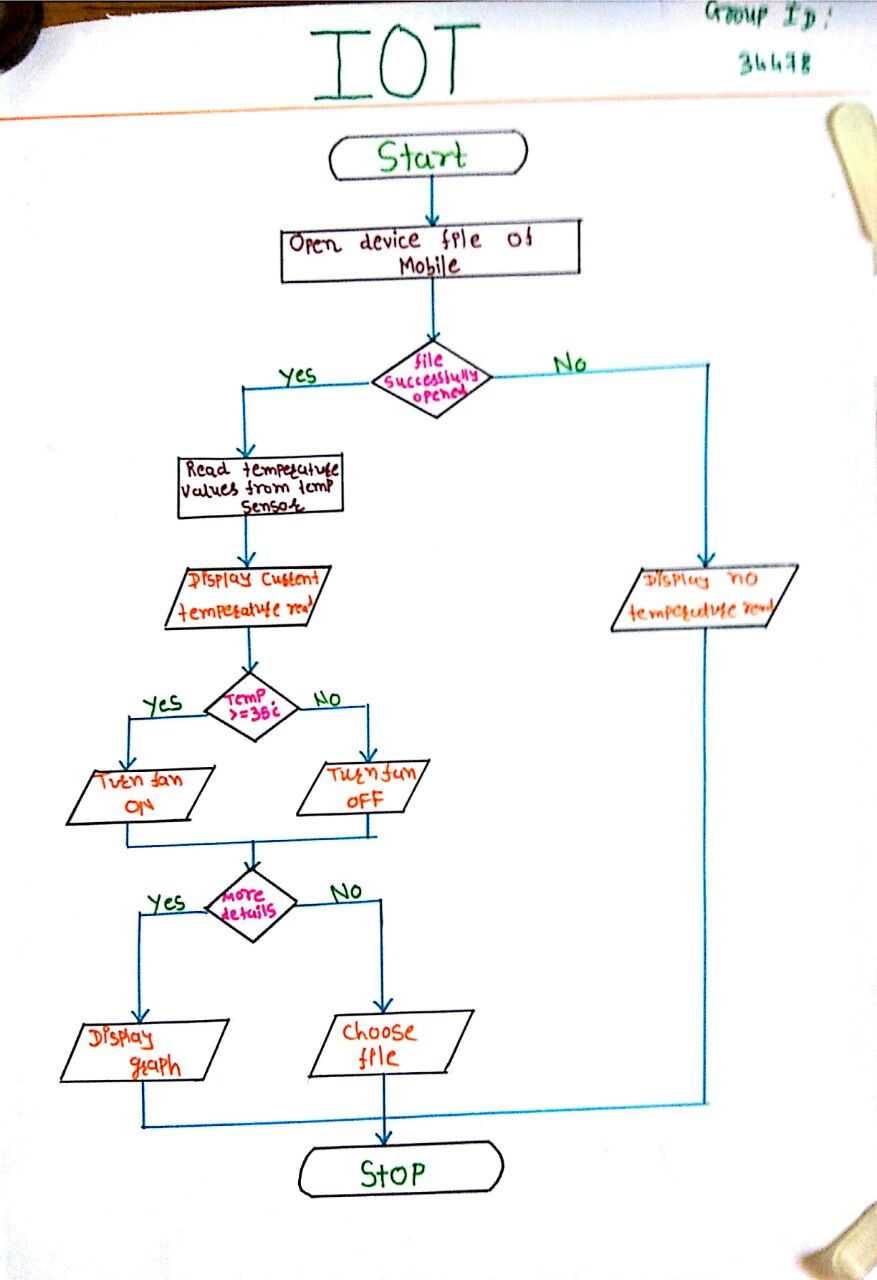 Group ID:
34478
IOT
Start
Open device file of
Mobile
file
successfully
opened
Yes
No
Read temperature
values from temp
sensor
Display current
temperature read
Display no
temperature read
Temp
>=35°c
Yes
No
Turn fan
ON
Turn fan
OFF
More
details
Yes
No
Display
graph
Choose
file
Stop